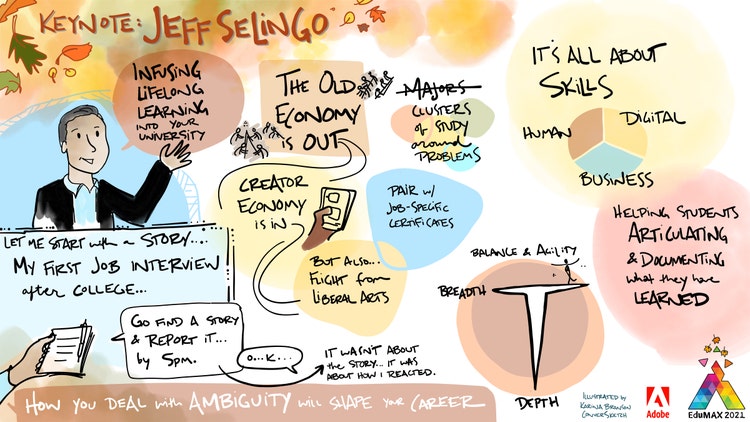 KEYNOTE: JEFF SELINGO
INFUSING
LIFELONG
LEARNING
INTO YOUR
UNIVERSITY
THE OLD
ECONOMY
is OUT
MAJORS
CLUSTERS
of STUDY
around
PROBLEMS
IT'S ALL ABOUT
SKILLS
HUMAN
DIGITAL
BUSINESS
CREATOR
ECONOMY
IS IN
PAIR W/
JOB-SPECIFIC
CERTIFICATES
BUT ALSO...
FLIGHT from
LIBERAL ARTS
LET ME START with a STORY....
MY FIRST JOB INTERVIEW
after COLLEGE...
GO FIND A STORY
& REPORT IT...
by 5pm.
O...K...
IT WASN'T ABOUT
the STORY... IT WAS
ABOUT HOW I REACTED.
BALANCE & AGILITY
BREADTH
DEPTH
HELPING STUDENTS
ARTICULATING
& DOCUMENTING
what they have
LEARNED
HOW YOU DEAL with AMBIGUITY will SHAPE your CAREER
ILLUSTRATED by
KARINA BRANSON
CONVERSKETCH
Adobe
EduMAX 2021